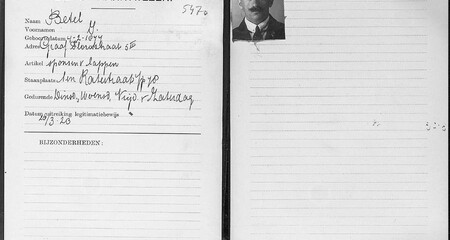 5470
Naam Betel
Voornamen Y.
Geboortedatum 4-2-1877
Adres Graaf Florisstraat 5 III
Artikel sponsen & lappen
Staanplaats Ten Katestraat
Gedurende Dinsd, Woensd, Vrijd & Zaterdag
Datum uitreiking legitimatiebewijs
26/3.26
BIJZONDERHEDEN: